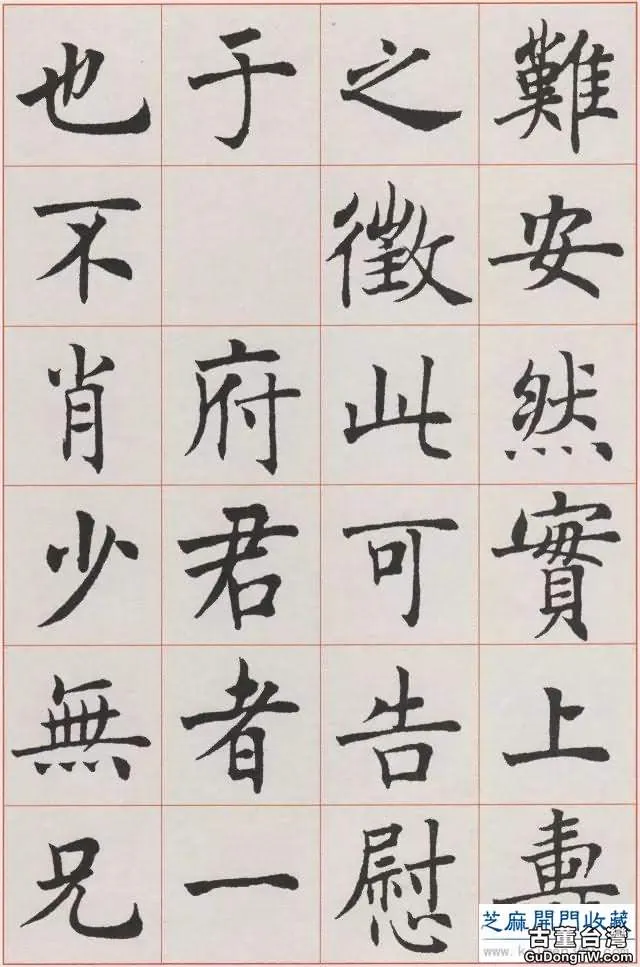 難安然實上壽
之徵此可告慰
于府君者一
也不肖少無兄
芝麻開門收藏
古董台灣
GuDongTW.com